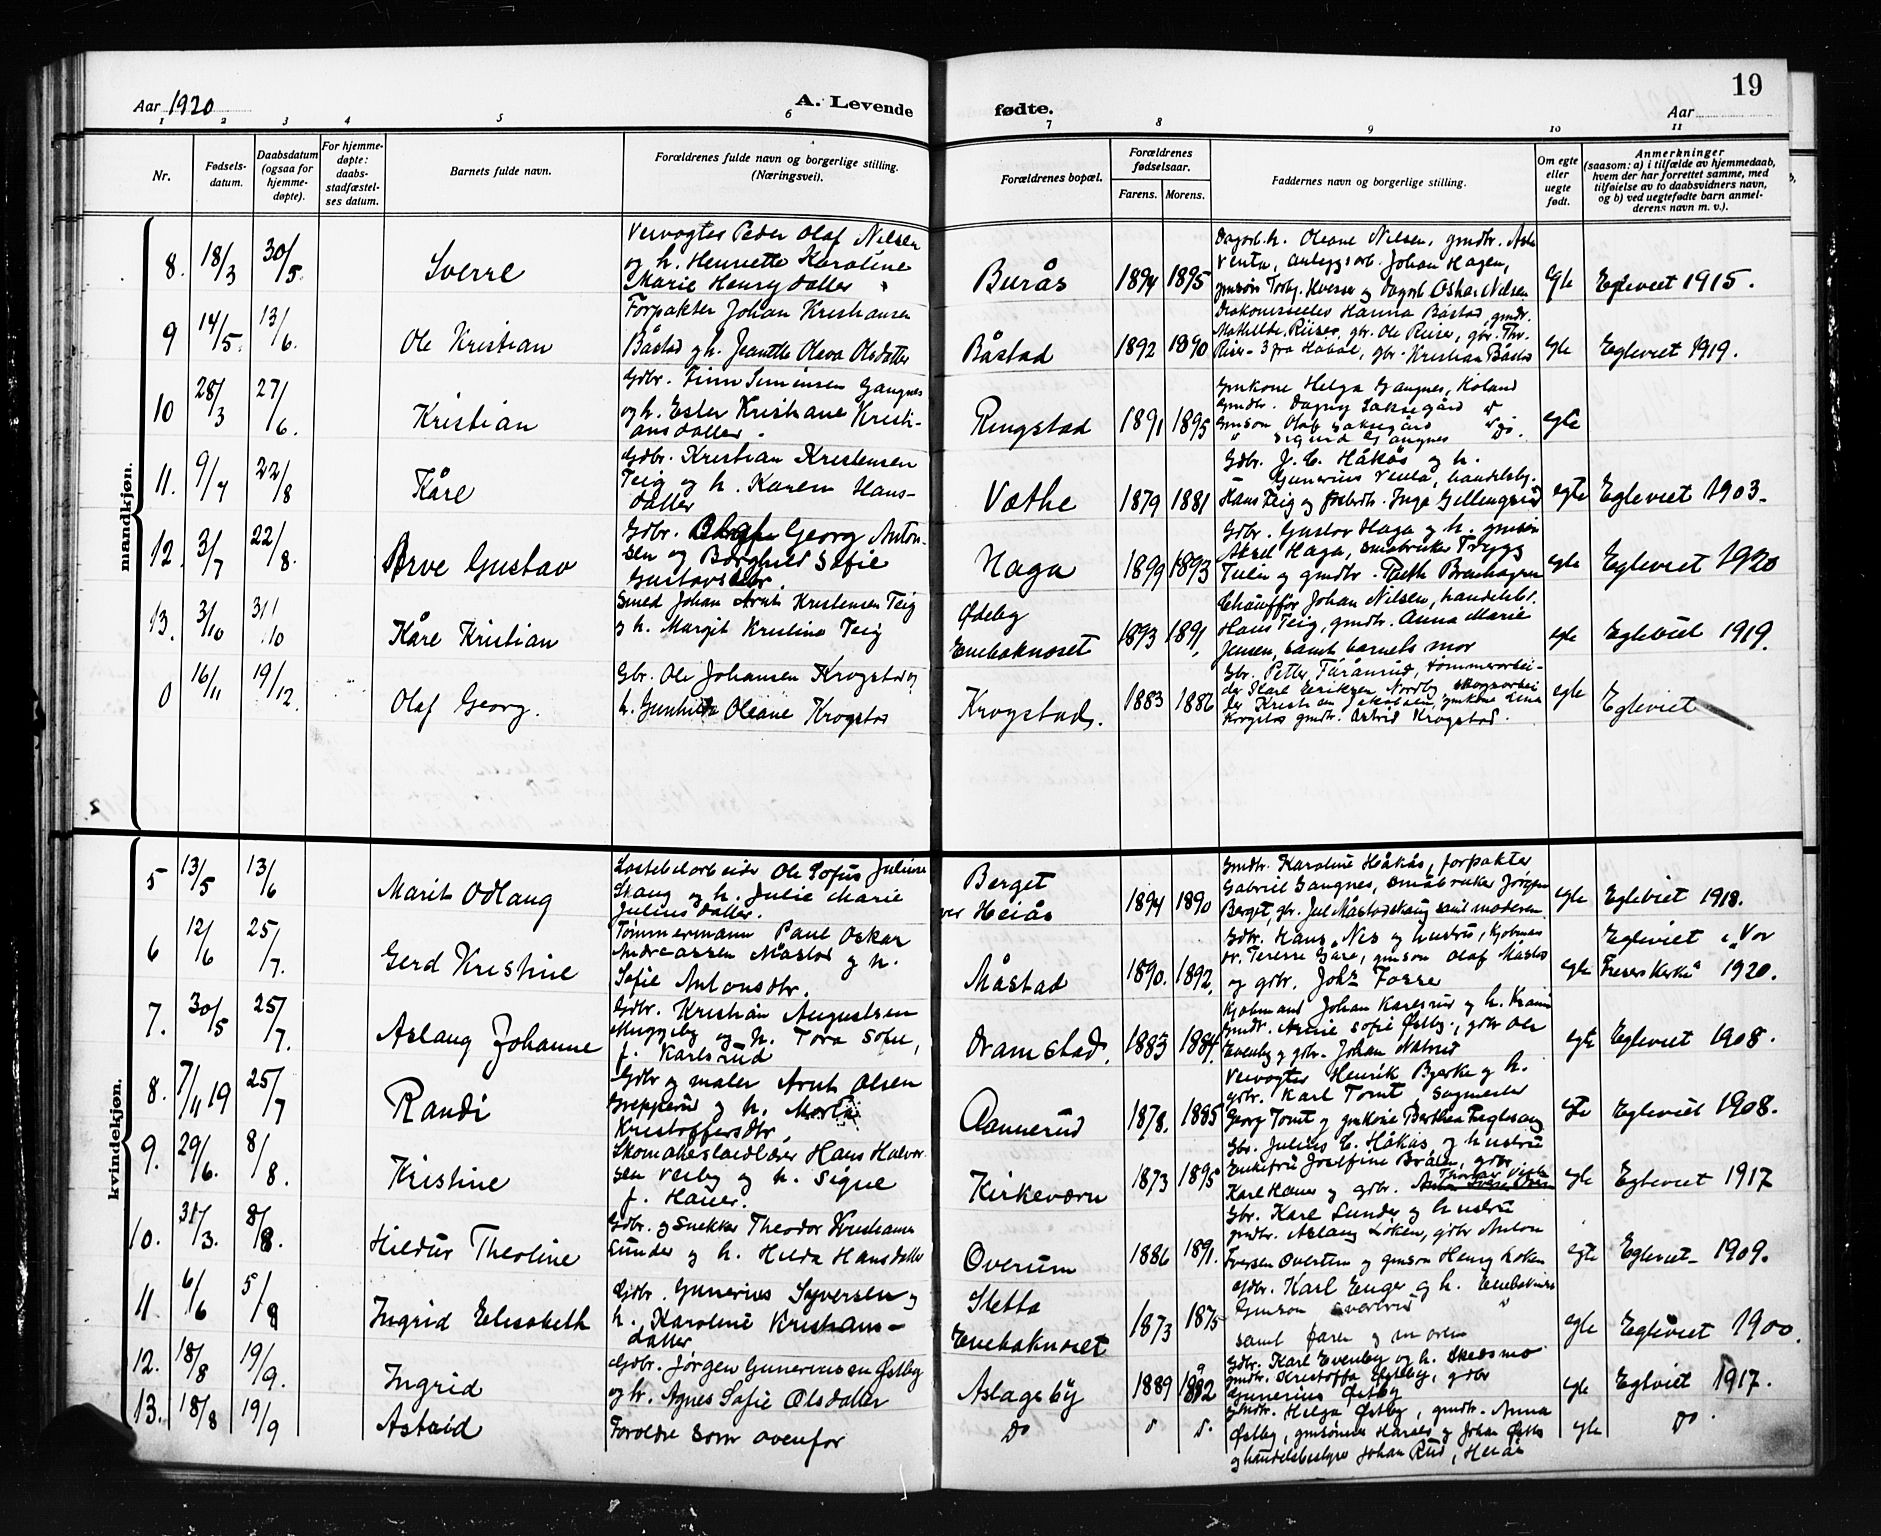 Aar 1920
A. Levende
fødte.
19
Aar
1 2 3 4 5 6 7 8 9 10 11
Nr.
Fødsels-
datum.
Daabsdatum
(ogsaa for
hjemme-
døpte).
For hjemme-
døpte:
daabs-
stadfæstel-
ses datum.
Barnets fulde navn.
Forældrenes fulde navn og borgerlige stilling.
(Næringsvei).
Forældrenes bopæl.
Forældrenes
fødselsaar.
Farens. Morens.
Faddernes navn og borgerlige stilling.
Om egte
eller
uegte
født.
Anmerkninger
(saasom: a) i tilfælde av hjemmedaab,
hvem der har forrettet samme, med
tilføielse av to daabsvidners navn,
og b) ved uegtefødte barn anmel-
derens navn m. v.).
mandkjøn.
8. 18/3 30/5. Sverre
Peder Olaf Nilsen
og h. Henriette Karoline
Marie Henrydatter
Burås 1894 1895
Dagarb.h. Oleane Nilsen, gmdtr. Asta
Venta, anleggsarb. Johan Hagen,
og dagarb. Oskar Nilsen
egte Egteviet 1915.
9 14/5. 13/6. Ole Kristian
Forpakter Johan Kristiansen
Båstad og h. Jeanette Olava Olsdatter
Båstad 1892 1890
Hanna Båstad, gmdtr.
Mathilde Riiser, gbr. Ole Riise, gbr. Thv.
Riser - 3 fra Hobøl, gbr. Kristian Båstad
egte Egteviet 1919.
10 28/3 27/6. Kristian
Gdbr. Finn Simensen Gangnes
og h. Ester Kristiane Kristi-
ansdatter.
Ringstad 1891 1895
Gmkone Helga Gangnes,
Gmdtr. Dagny Saksegård
Gmson Olaf Saksegård Do.
" Sigurd Gangnes
egte
11. 9/7 22/8 Kåre
Gdbr. Kristian Kristensen
Teig og h. Karen Hans-
datter
Væthe 1879 1881
Gdbr. J. C. Håkås og h.
Gunerius Venta, handelsb.
Hans Teig og Inga Gillingsrud
egte Egteviet 1903.
12. 3/7 22/8. Arve Gustav
Gdbr. Georg Anton-
sen og Borghild Sofie
Gustavsdtr.
Haga 1899 1893
Gdbr. Gustav Haga og h. gmsøn
Aksel Haga, småbruker Trygg
og gmdtr.
egte Egteviet 1920
13. 3/10 31/10 Kåre Kristian
Smed Johan Arnt Kristensen Teig
og h. Margit Kristine Teig
Ødeby
Enebaknæset 1893 1891,
Chauffør Johan Nilsen, handelsb.
Hans Teig, gmdtr. Anna Marie
Jensen, samt barnets mor
egte Egteviet 1919.
0 16/11 19/12. Olaf Georg.
Gbr. Ole Johansen Krogstad og
h. Gunhilda Oleane Krogstad
Krogstad. 1883 1886
Gbr. Petter Tåråmrud, tømmerarbei-
der Karl Eriksen Nordby, skogsarbei-
der Kristian Jakobsen, gmkone Lina
Krogstad gmdtr. Astrid Krogstad.
egte Egteviet
kvindekjøn.
5 13/5 13/6 Marit Odlaug
Ole Sofus Julius
Skaug og h. Julie Marie
Juliusdatter.
Berget
Heiås 1894 1890
Gmdtr. Karoline Håkås, forpakter
Gabriel Gangnes, småbruker Jørgen
Berget, gbr. Jul Måstadskaug samt moderen
egte Egteviet 1918.
6 12/6 25/7. Gerd Kristine
Tømmermann Paul Oskar
Andreassen Måstad og h.
Sofie Antonsdtr.
Måstad 1890. 1892.
Gdbr. Hans Nes og hustru,
gmson Olaf Måstad
og gdbr. Johs Fosse
egte Egteviet i „Vor
Frelsers Kirke" 1920.
7. 30/5 25/7. Aslaug Johanne
Gdbr. Kristian Augustsen
Muggeby og h. Tora Sofie,
f. Karlsrud
Dramstad, 1883 1884.
Kjøbmand Johan Karlsrud og h.
Gmdtr. Annie Sofie Østby, gdbr Ole
Evenby og gdbr. Johan
egte Egteviet 1908.
8. 7/11 19 25/7 Randi
Gdbr og maler Arnt Olsen
Grepperud og h. Marta
Kristoffersdtr,
Aannerud 1878. 1885
Henrik Bjerke og h.
gdbr. Karl Tomt sagmester
Georg Tomt og gmkone Berthea Fuglesang
egte Egteviet 1908.
9. 29/6. 8/8. Kristine
Hans Halvor-
sen Vesby og h. Signe
f. Hauer.
Kirkeværn 1873 1895
Gbr. Julius C. Håkås og hustru
Enkefru Josefine Bråten, gdbr.
Karl Hauer og gdbr. Thorvar Vestby
egte Egteviet 1917
10. 31/3. 8/8. Hildur Theoline
Gdbr. og snekker Theodor Kristiansen
Lunder og h. Hilda Hansdatter
Overum 1886 1891.
Gbr. Karl Lunder og hustru
gmdtr. Aslaug Løken, gdbr Anton
Iversen Overum og gmson Henry Løken
egte Egteviet 1909.
11 6/6 5/8 Ingrid Elisabeth
Gdbr. Gunerius Syversen og
h. Karoline Kristians-
datter
Sletta
Enebaknæset 1873 1875
Gdbr. Karl Enger og h. Enebaknæs
Gmson
samt faren og moren
egte Egteviet 1900.
12. 18/8 19/9. Ingrid
Gdbr. Jørgen Guneriussen Østby
og h. Agnes Sofie Olsdatter
Aslagsby 1889 1892
Gdbr. Karl Evenby og h. Skedsmo
gmdtr. Kristoffa Østby, gdbr
Gunerius Østby
egte Egteviet 1917.
13. 18/8 19/9 Astrid
Foreldre som ovenfor
Do
Gmdtr. Helga Østby, gmdtr. Anna
Østby, gmsønner Harald og Johan Østby
og handelsbestyrer Johan Rud, Heiås
egte Do.